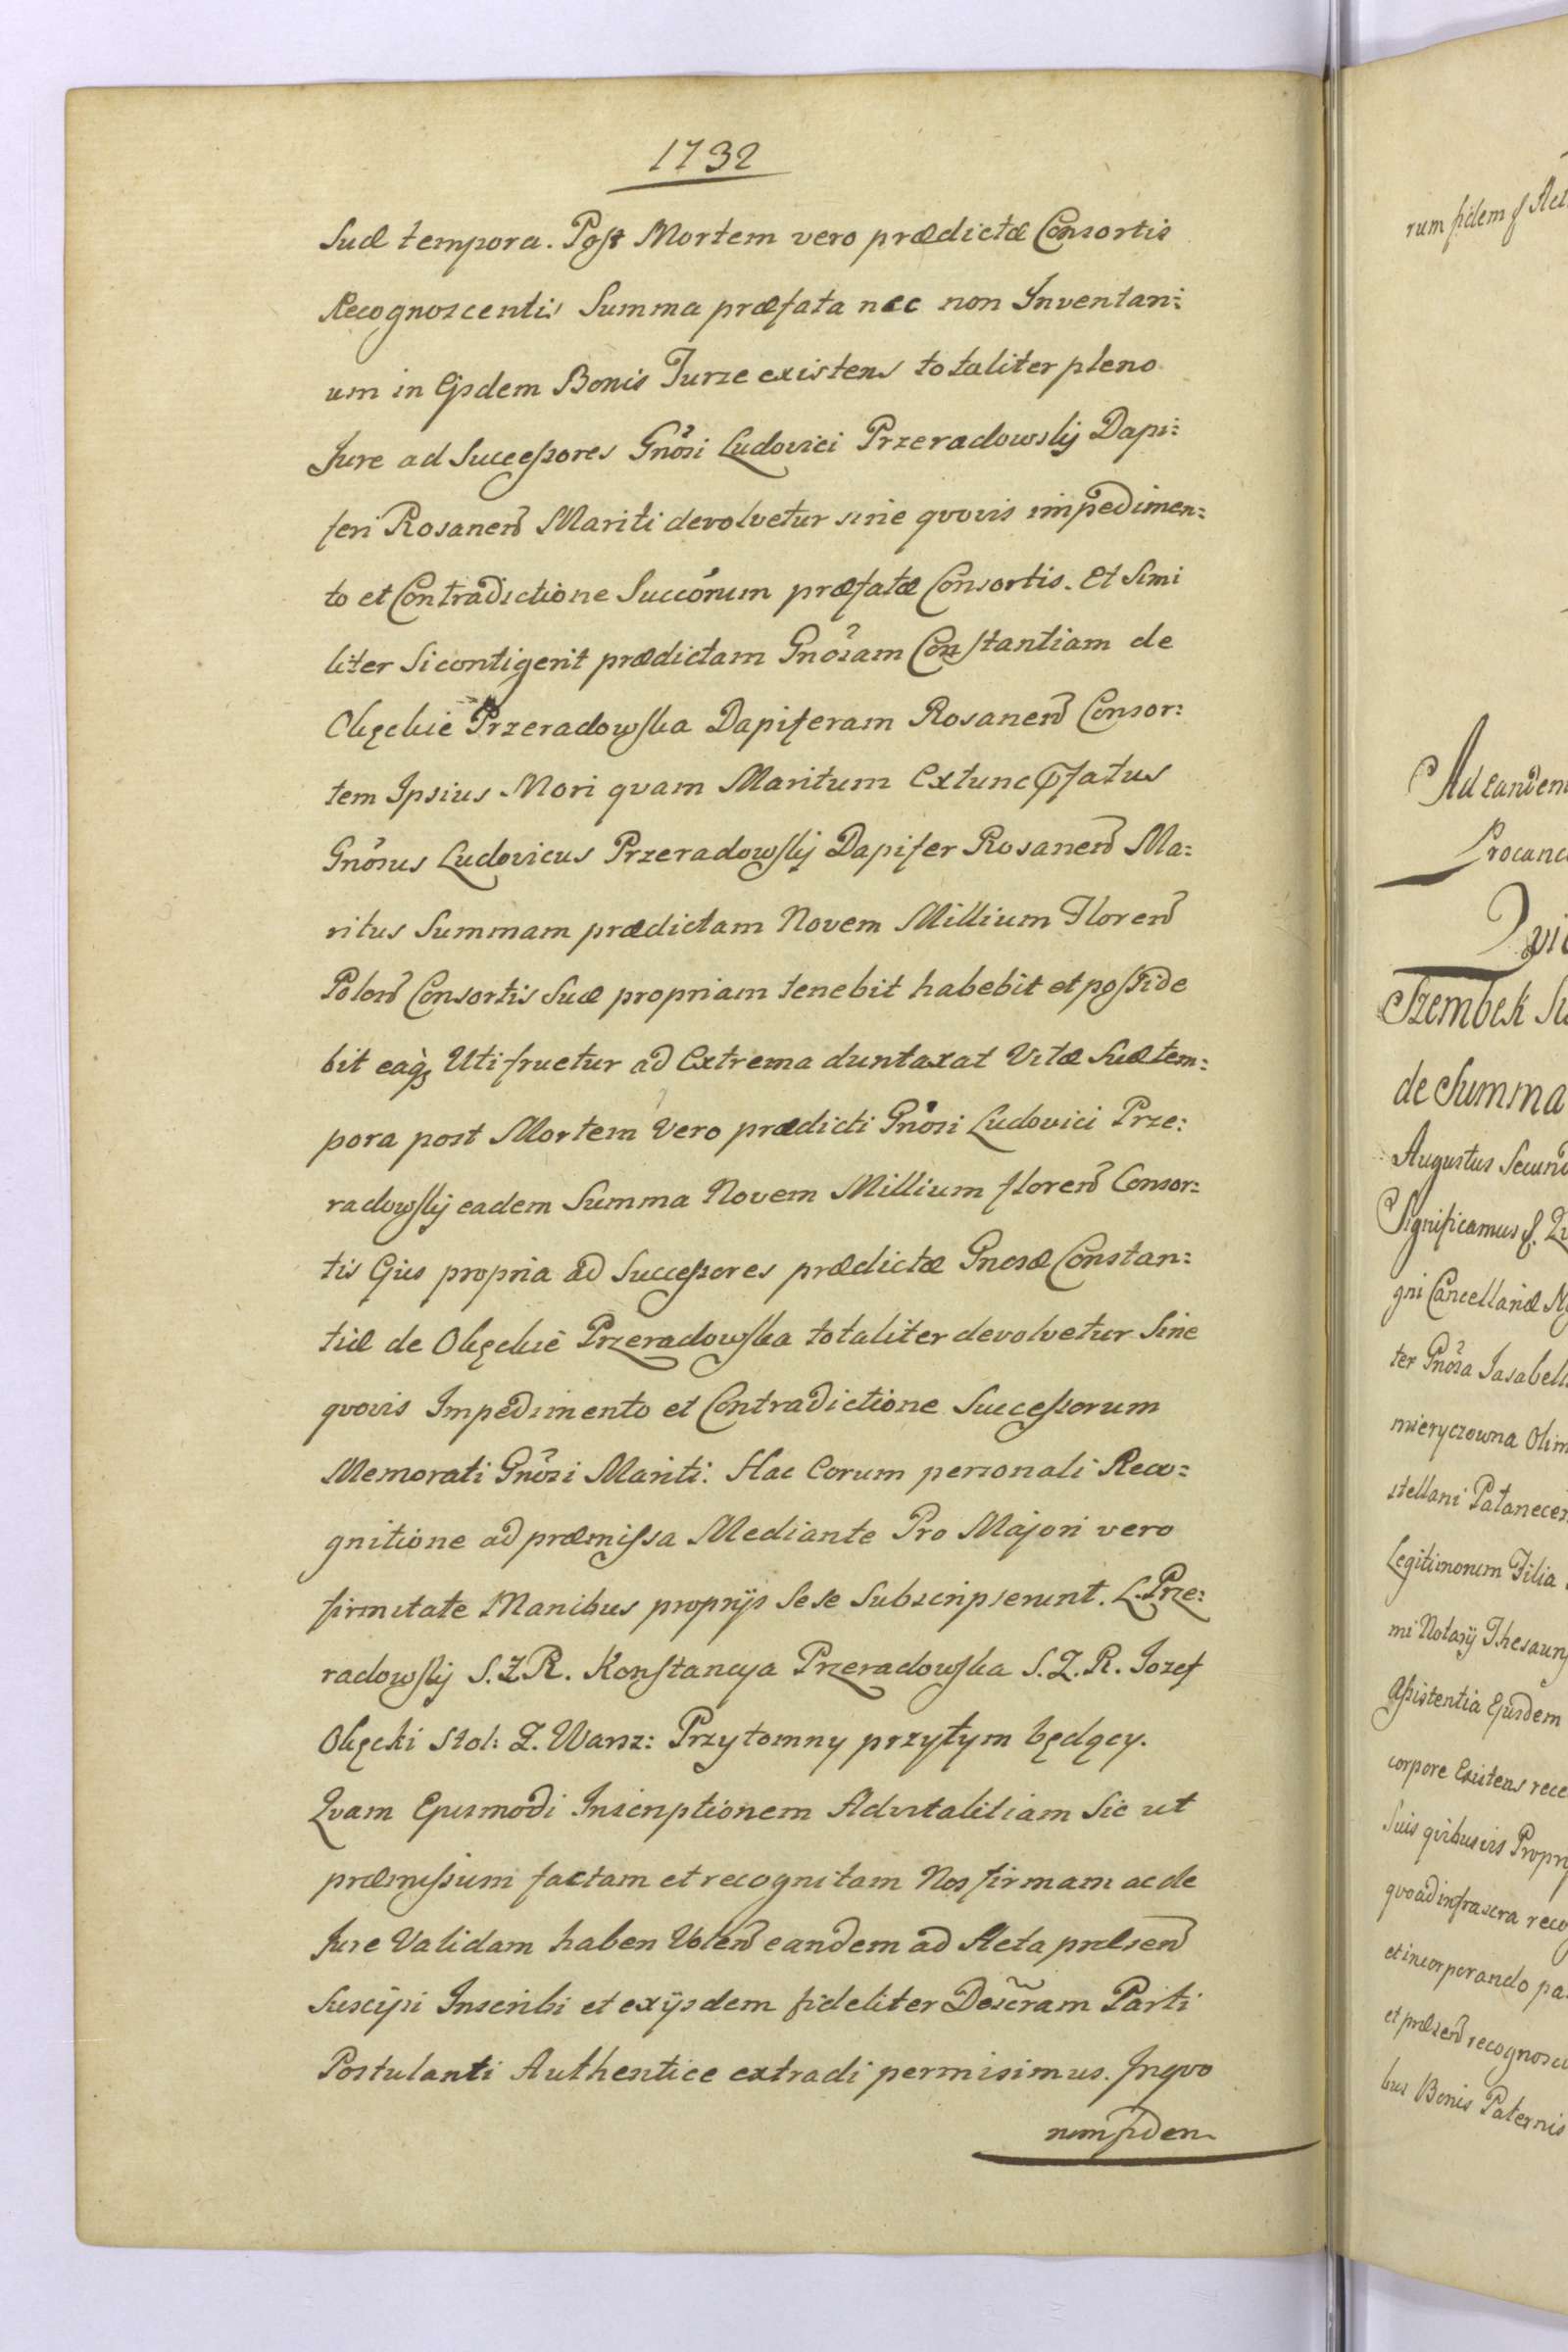 1732
Suæ tempora. Post Mortem vero prædictæ Consortis
Recognoscentis Summa præfata nec non Inventari:
um in Ijsdem Bonis Turze existens totaliter pleno
Jure ad Successores Gnosi Ludovici Przeradowskij Dapi:
feri Rosanen Mariti devolvetur sine quovis impedimen:
to et Contradictione Succorum præfatæ Consortis. Et Simi
liter Si contigerit prædictam Gnosam Constantiam de
Okęckie Przeradowska Dapiferam Rosanen Consor:
tem Ipsius Mori quam Maritum Extunc Pfatus
Gnosus Ludovicus Przeradowskij Dapifer Rosanen Ma:
ritus Summam prædictam Novem Millium Floren
Polon Consortis Suæ propriam tenebit habebit et posside
bit eaq Uti fruetur ad Extrema duntaxat Vitæ Suæ tem:
pora post Mortem Vero prædicti Gnosi Ludovici Prze:
radowskij eadem Summa Novem Millium floren Consor:
tis Ejus propria ad Successores prædictæ Gnosæ Constan:
tiæ de Okęckie Przeradowska totaliter devolvetur Sine
quovis Impedimento et Contradictione Successorum
Memorati Gnosi Mariti. Hac Eorum personali Reco:
gnitione ad præmissa Mediante Pro Majori vero
firmitate Manibus proprijs Se se Subscripserunt. L. Prze:
radowskij S. Z R. Konstancya Przeradowska S. Z. R. Jozef
Okęcki Stol: Z. Warsz: Przytomny przytym będący.
Quam Ejusmodi Inscriptionem Advitalitiam Sic ut
præmissum factam et recognitam Nos firmam ac de
Jure Validam haben Volen eandem ad Acta præsen
Suscipi Inscribi et ex ijsdem fideliter Descram Parti
Postulanti Authentice extradi permisimus. In quo
rum fidem
rum fidem & Act
Ad eandem
Procanc
Qvi
Szembek Su
de Summa
Augustus Secund
Significamus &. Qu
gni Cancellariæ
ter Gnosa Jasabell
mieryczowna Olim
stellani Patanecen
Legitimorum Filia
mi Notarij Thesauri
Assistentia Ejusdem
corpore Existens rece
Suis quibusvis Propri
quoad infrascra reco
et incorporando pa
et præsen recognosci
bus Bonis Paternis